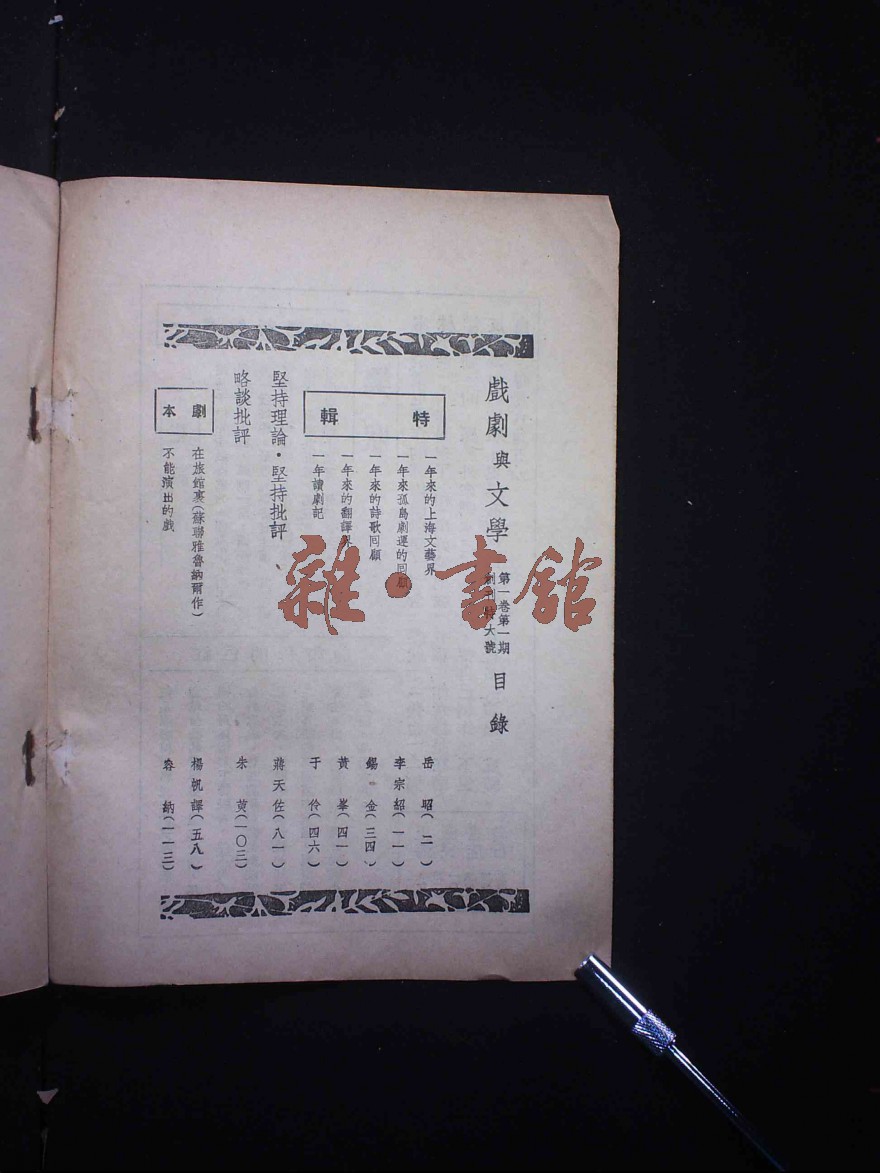 戲劇與文學 第一卷第一期 創刊特大號 目錄
特輯
一年來的上海文藝界 岳昭(二一)
一年來孤島劇運的回顧 李宗紹(一一)
一年來的詩歌回顧 錫金(三四)
一年來的翻譯界 黃峯(四一)
一年讀劇記 于伶(四六)
堅持理論・堅持批評 蔣天佐(八一)
略談批評 朱黃(一〇三)
劇本
在旅館裏(蘇聯雅魯納爾作) 楊帆譯(五八)
不能演出的戲 春納(一一三)
雜・書館